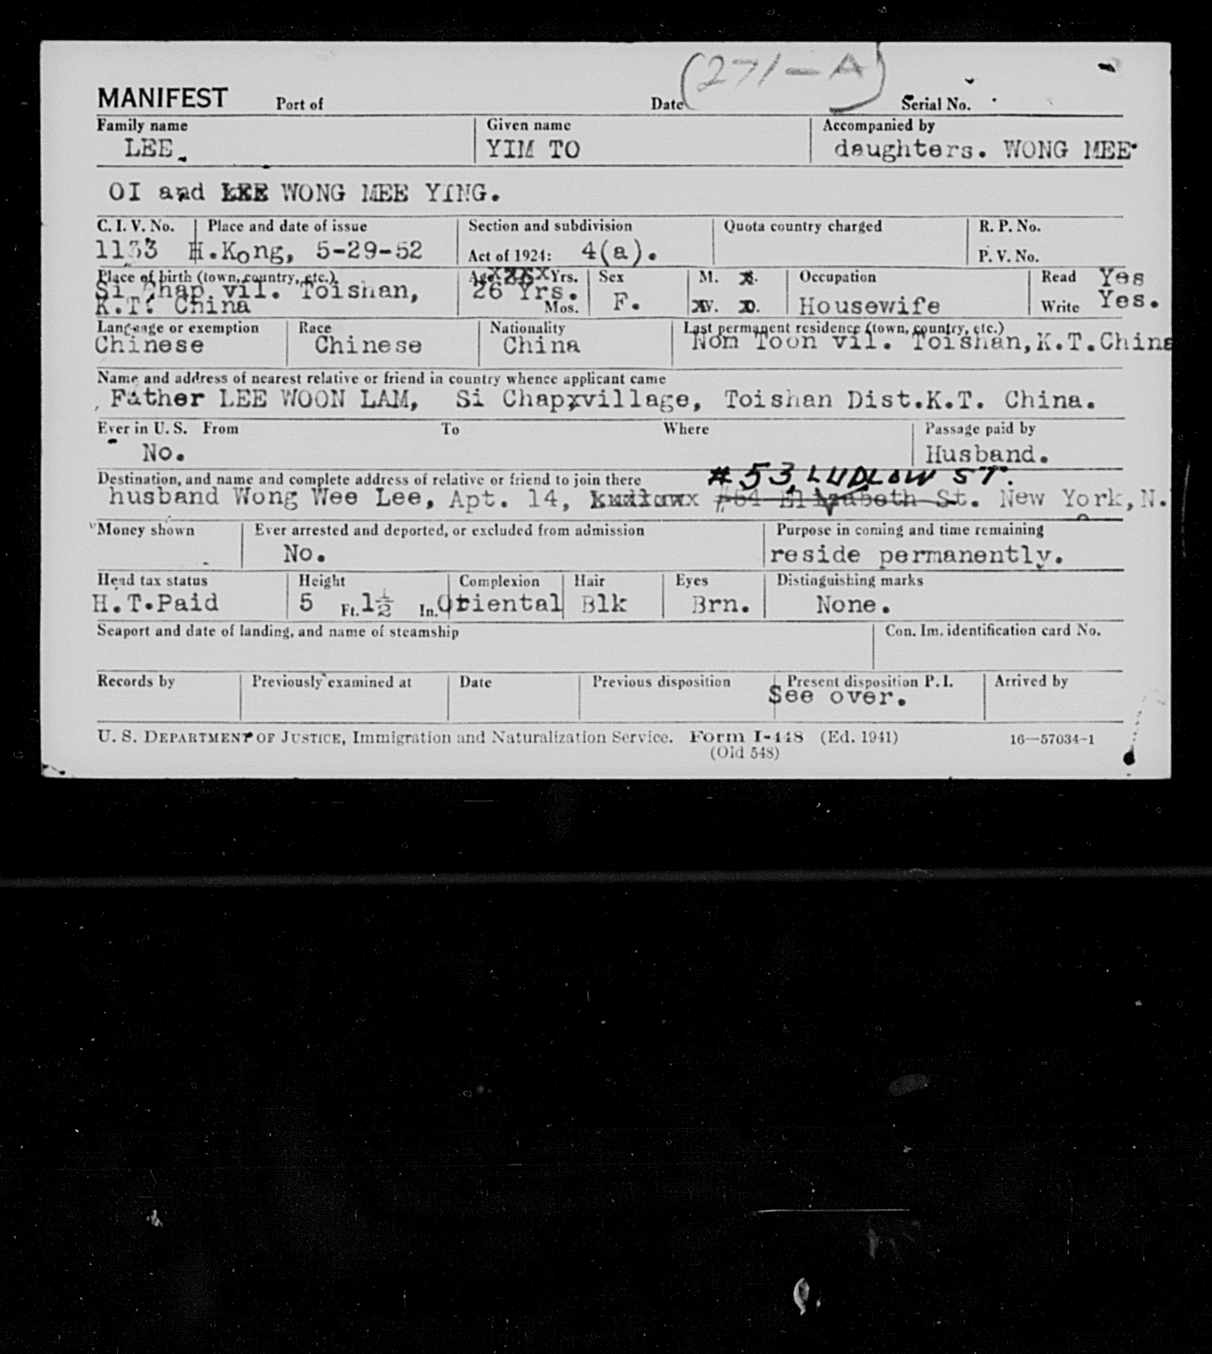 (271-A)
MANIFEST Port of Date Serial No.
Family name Given name Accompanied by
LEE. YIM TO daughters. WONG MEE
OI and WONG MEE YING.
C. I. V. No. Place and date of issue Section and subdivision Quota country charged R. P. No.
1133 H.Kong, 5-29-52 Act of 1924: 4(a). P. V. No.
Place of birth (town, country, etc.) Age Yrs. Sex M. S. Occupation Read Yes
Si Chap vil. Toishan, 26 Yrs. F. W. D. Housewife Write Yes.
K.T. China Mos.
Language or exemption Race Nationality Last permanent residence (town, country, etc.)
Chinese Chinese China Nom Toon vil. Toishan,K.T.China
Name and address of nearest relative or friend in country whence applicant came
Father LEE WOON LAM, Si Chapxvillage, Toishan Dist.K.T. China.
Ever in U. S. From To Where Passage paid by
No. Husband.
Destination, and name and complete address of relative or friend to join there #53, LUDLOW ST.
husband Wong Wee Lee, Apt. 14, #64 Elizabeth St. New York,N.
Money shown Ever arrested and deported, or excluded from admission Purpose in coming and time remaining
No. reside permanently.
Head tax status Height Complexion Hair Eyes Distinguishing marks
H.T.Paid 5 Ft. 1½ In. Oriental Blk Brn. None.
Seaport and date of landing, and name of steamship Con. Im. identification card No.
Records by Previously examined at Date Previous disposition Present disposition P. I. Arrived by
See over.
U. S. DEPARTMENT OF JUSTICE, Immigration and Naturalization Service. Form I-448 (Ed. 1941) 16—57034-1
(Old 548)